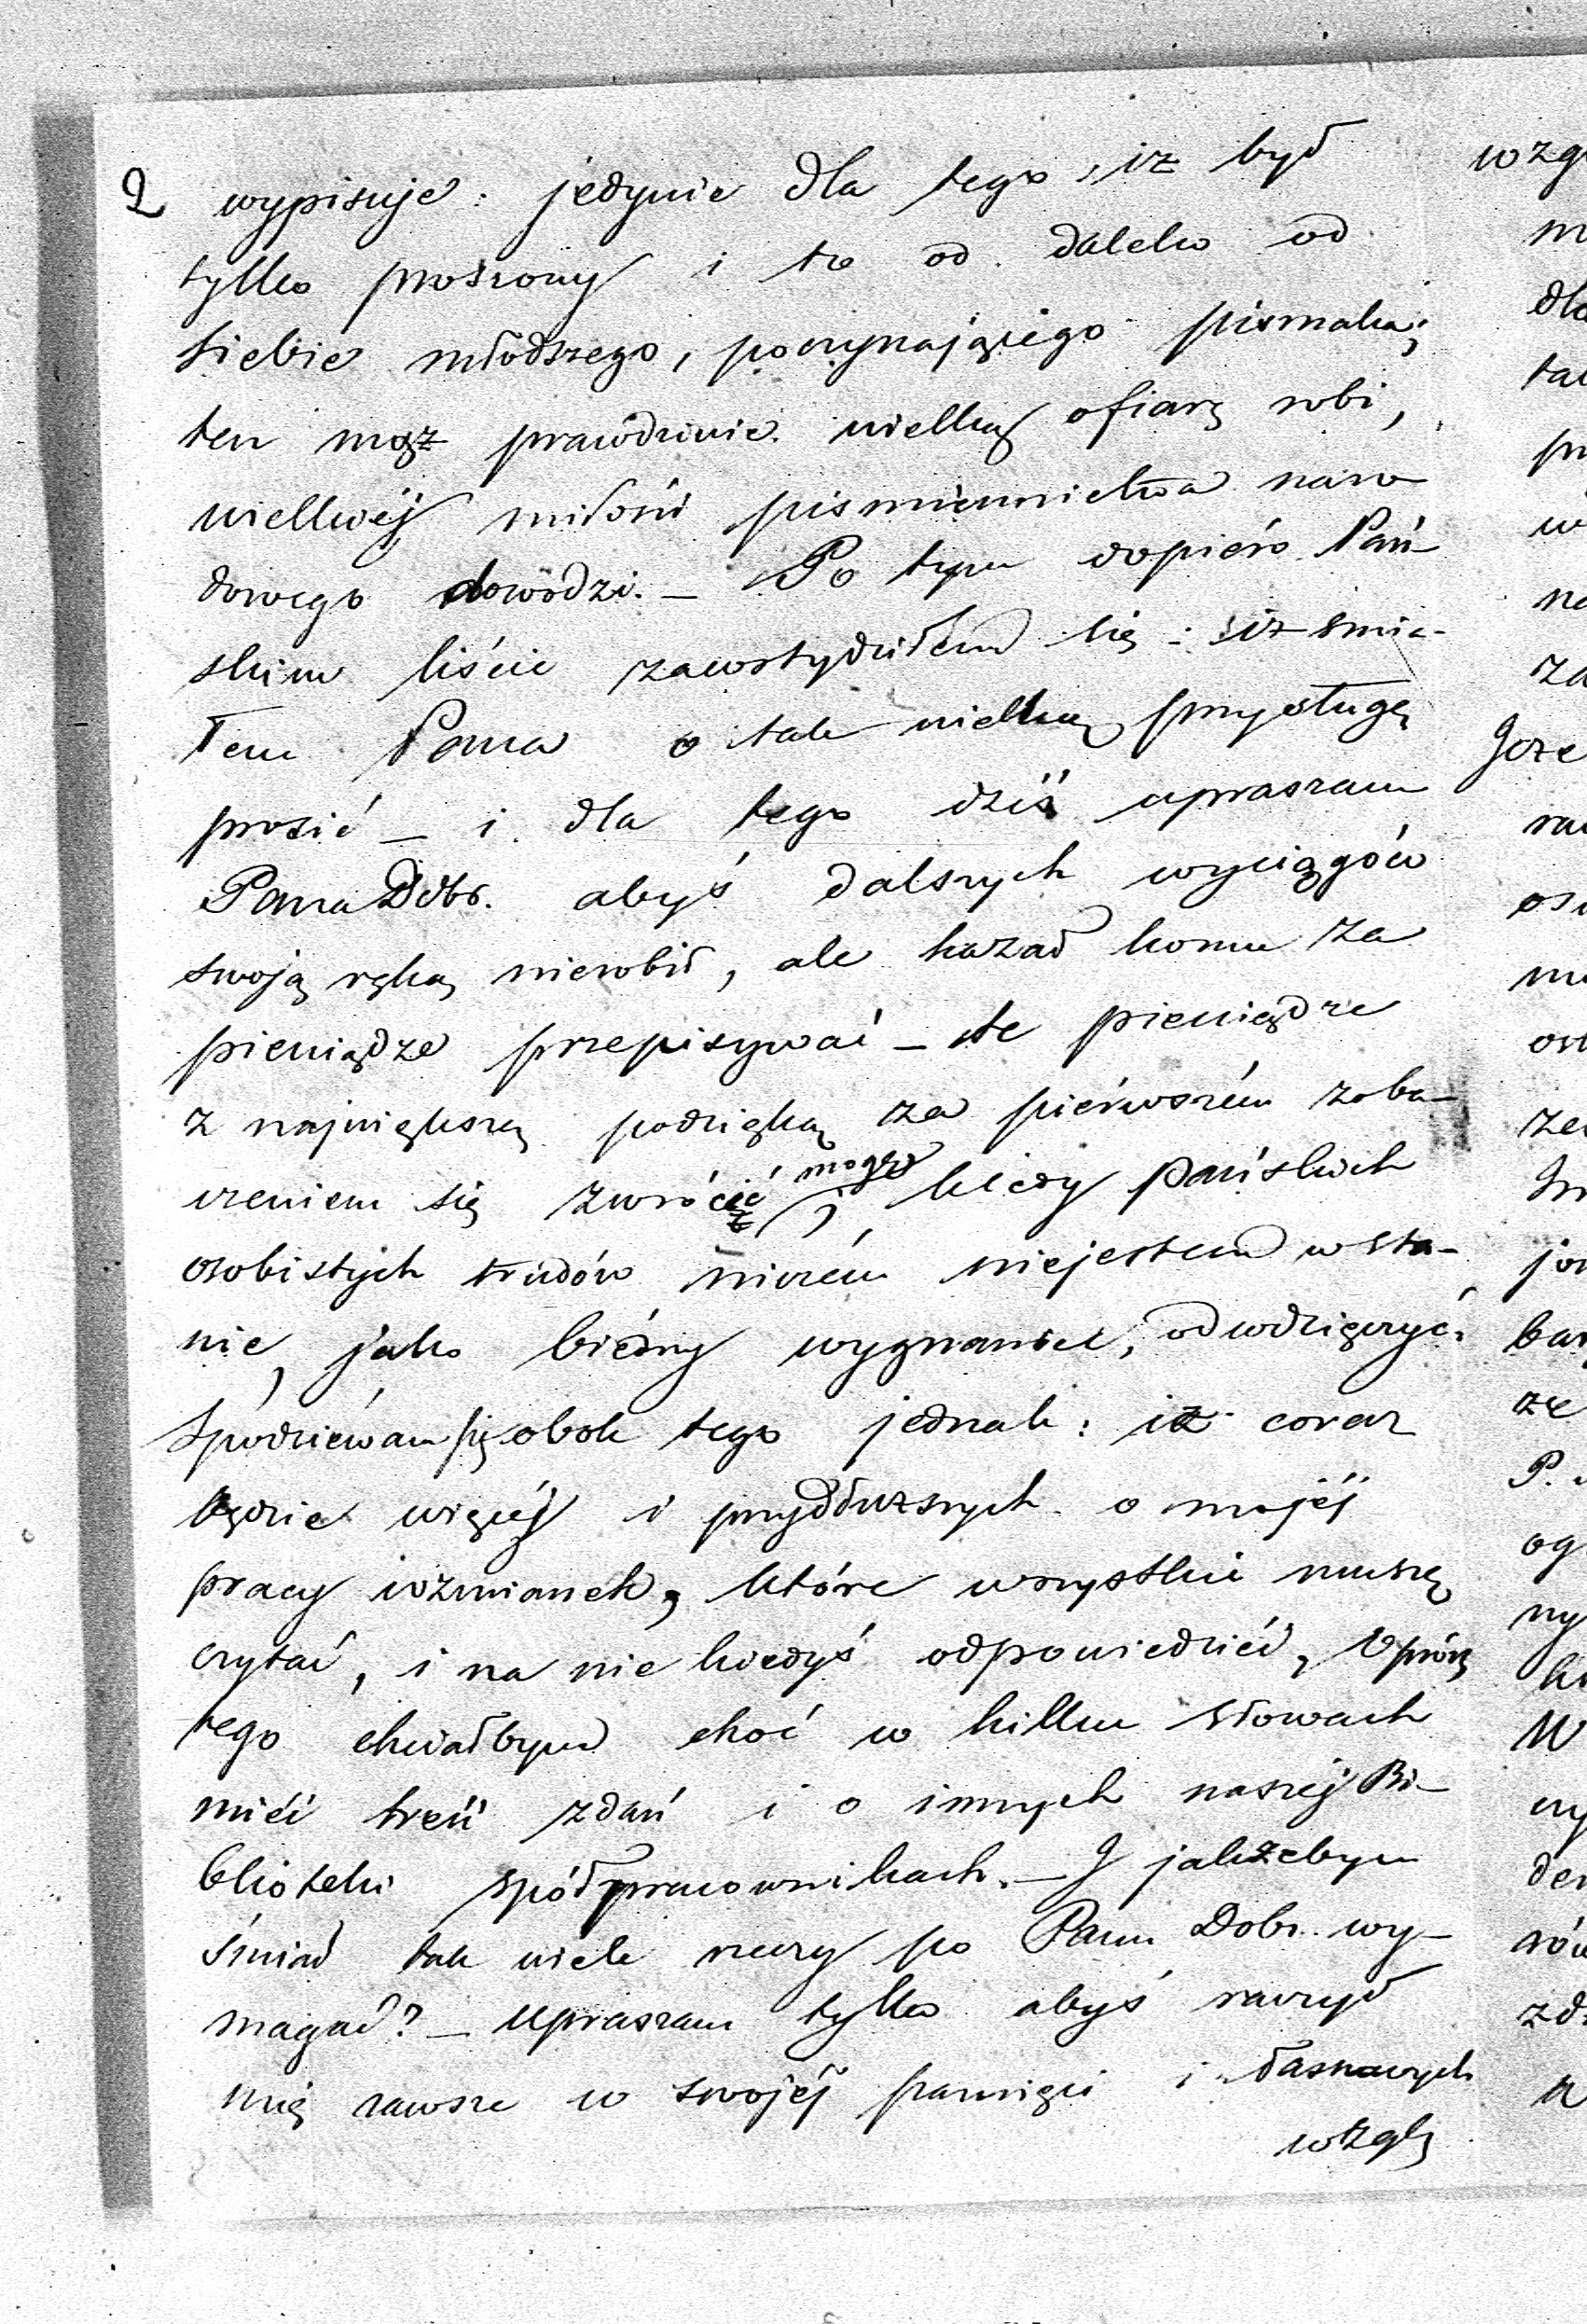 2 wypisuje: jedynie dla tego, iż był
tylko proszony i to od daleko od
siebie młodszego, poczynającego pismaka;
ten mąż prawdziwie wielką ofiarę robi,
wielkiéj miłości piśmiennictwa naro-
dowego dowodzi. – Po tym dopiéro Pań-
skim liście zawstydziłem się: iż śmia-
łem Pana o tak wielką przysługę
prosić – i dla tego dziś upraszam
Pana Dobr. abyś dalszych wyciągów
swoją ręką nierobił, ale kazał komu za
pieniądze przepisywać – te pieniądze
z największą podzięką za piérwszém zoba-
czeniem się zwrócić mogę, kiedy Pańskich
osobistych trudów niczém niejestem w sta-
nie, jako biédny wygnaniec, odwdzięczyć.
Spodziéwam się obok tego jednak: iż coraz
będzie więcéj i przydłuższych o mojéj
pracy wzmianek, które wszystkie muszę
czytać, i na nie kiedyś odpowiedzieć, Oprócz
tego chciałbym choć w kilku słowach
mieć treść zdań i o innych naszéj Bi-
blioteki spółpracownikach. – I jakżebym
śmiał tak wiele rzeczy po Panu Dobr. wy-
magać? – Upraszam tylko abyś raczył
mię zawsze w swojéj pamięci i łaskawych
wzglę
wzgl
m
dla
tak
pr
w
na
za
Joze
raz
osw
mo
ost
zen
Im
jon
bar
zę
P.
ogł
ny
ki
W
czy
den
rów
zd